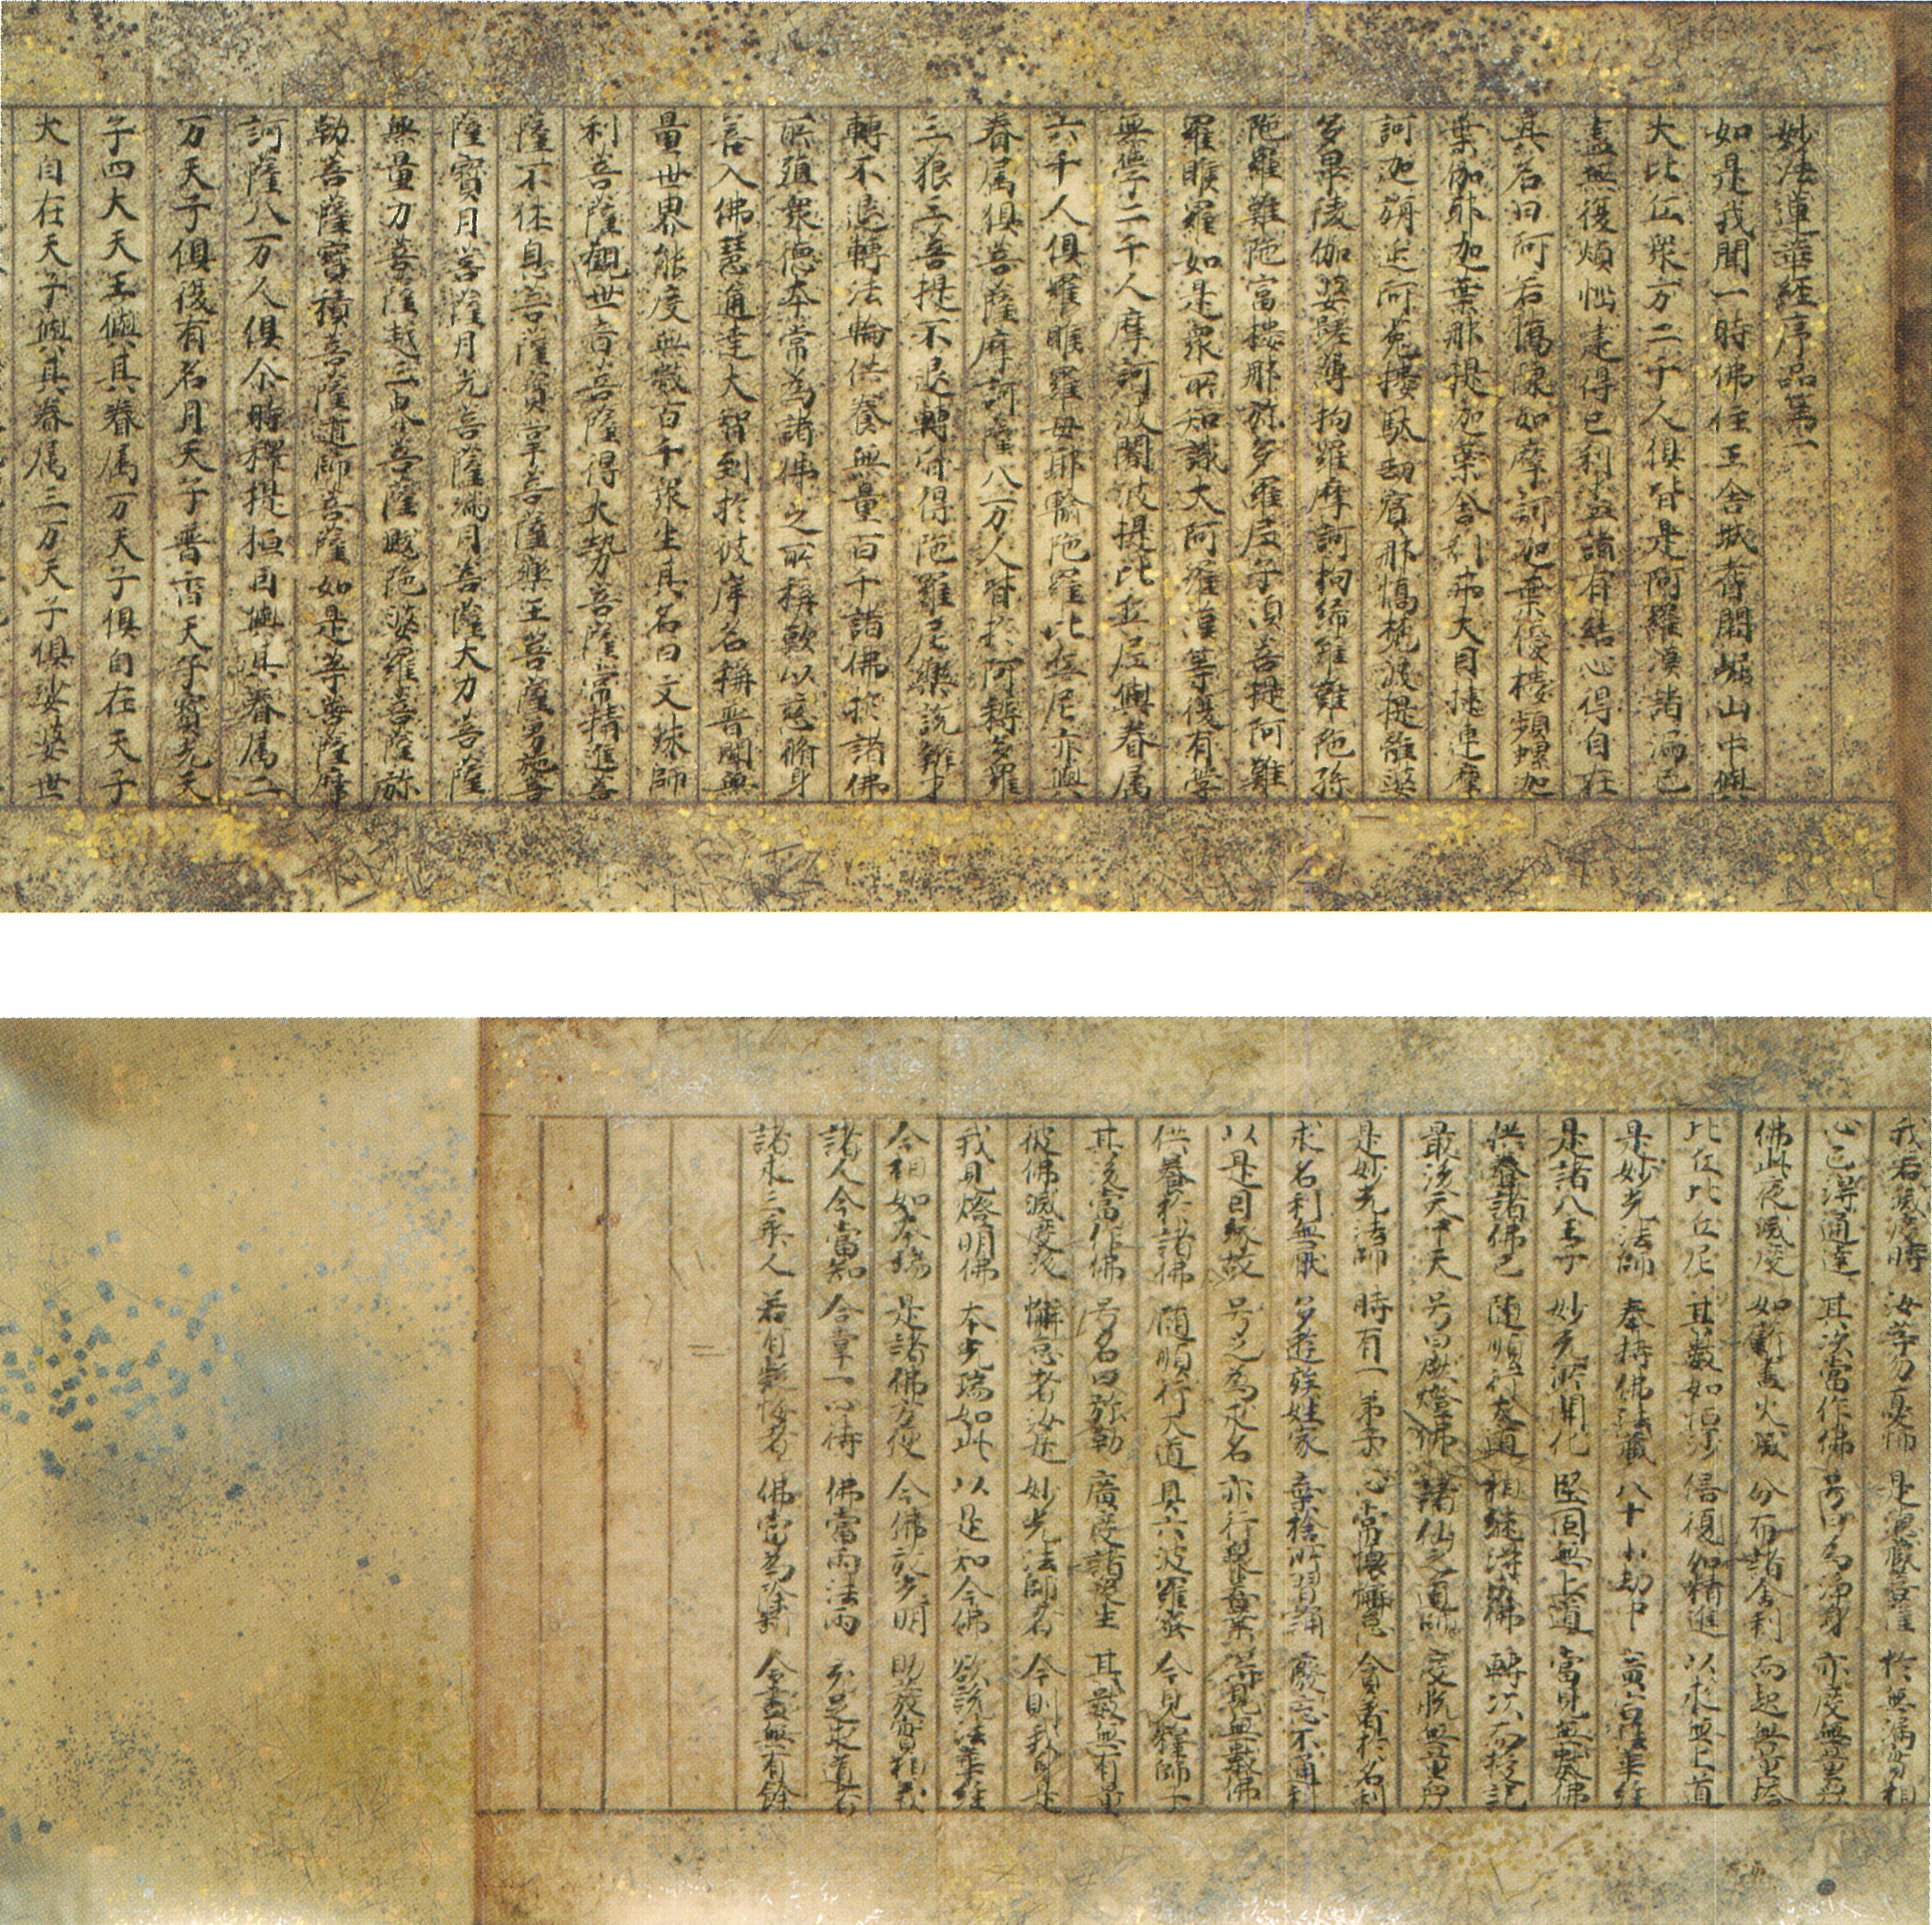 妙法蓮華經序品第一
如是我聞一時佛住王舍城耆闍崛山中與
大比丘眾万二千人俱皆是阿羅漢諸漏已
盡無復煩惱逮得己利盡諸有結心得自在
其名曰阿若憍陳如摩訶迦葉優樓頻螺迦
葉伽耶迦葉那提迦葉舍利弗大目揵連摩
訶迦旃延阿㝹樓馱劫賓那憍梵波提離婆
多畢陵伽婆蹉薄拘羅摩訶拘絺羅難陀孫
陀羅難陀富樓那弥多羅尼子須菩提阿難
羅睺羅如是眾所知識大阿羅漢等復有學
無學二千人摩訶波闍波提比丘尼與眷属
六千人俱羅睺羅母耶輸陀羅比丘尼亦與
眷属俱菩薩摩訶薩八万人皆於阿耨多羅
三藐三菩提不退轉皆得陀羅尼樂說辯才
轉不退轉法輪供養無量百千諸佛於諸佛
所殖眾德本常為諸佛之所稱歎以慈脩身
善入佛慧通達大智到於彼岸名稱普聞無
量世界能度無數百千眾生其名曰文殊師
利菩薩觀世音菩薩得大勢菩薩常精進菩
薩不休息菩薩寶掌菩薩藥王菩薩勇施菩
薩寶月菩薩月光菩薩滿月菩薩大力菩薩
無量力菩薩越三界菩薩颰陀婆羅菩薩弥
勒菩薩寶積菩薩道師菩薩如是等菩薩摩
訶薩八万人俱尒時釋提桓因與其眷属二
万天子俱復有名月天子普香天子寶光天
子四大天王與其眷属万天子俱自在天子
大自在天子與其眷属三万天子俱娑婆世
我若滅度時 汝等勿憂怖 是德藏菩薩 於無漏實相
心已得通達 其次當作佛 号曰為淨身 亦度無量眾
佛此夜滅度 如薪盡火滅 分布諸舍利 而起無量塔
比丘比丘尼 其數如恒沙 倍復加精進 以求無上道
是妙光法師 奉持佛法藏 八十小劫中 廣宣法華經
是諸八王子 妙光所開化 堅固無上道 當見無數佛
供養諸佛已 隨順行大道 相繼得成佛 轉次而授記
最後天中天 号曰燃燈佛 諸仙之道師 度脫無量眾
是妙光法師 時有一弟子 心常懷懈怠 貪著於名利
求名利無厭 多遊族姓家 棄捨所習誦 廢忘不通利
以是因緣故 号之為求名 亦行眾善業 得見無數佛
供養於諸佛 隨順行大道 具六波羅蜜 今見釋師子
其後當作佛 号名曰弥勒 廣度諸眾生 其數無有量
彼佛滅度後 懈怠者汝是 妙光法師者 今則我身是
我見燈明佛 本光瑞如此 以是知今佛 欲說法華經
今相如本瑞 是諸佛方便 今佛放光明 助發實相義
諸人今當知 合掌一心待 佛當雨法雨 充足求道者
諸求三乘人 若有疑悔者 佛當為除斷 令盡無有餘